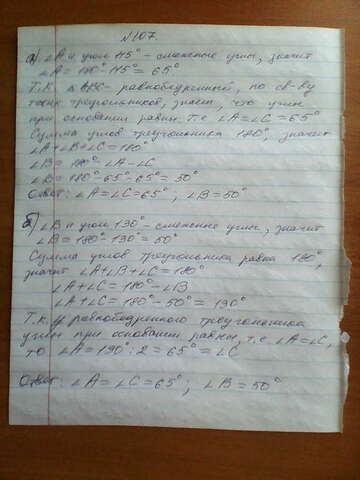 №107.
а) ∠А и угол 115° - смежные углы, значит
∠А = 180° - 115° = 65°
Т.к. ΔАВС - равнобедренный, по св-ву
таких треугольников, знаем, что углы
при основании равны т.е ∠А = ∠С = 65°
Сумма углов треугольника 180°, значит
∠А + ∠В + ∠С = 180°
∠В = 180° - ∠А - ∠С
∠В = 180° - 65° - 65° = 50°
Ответ: ∠А = ∠С = 65°, ∠В = 50°
б) ∠В и угол 130° - смежные углы, значит
∠В = 180° - 130° = 50°
Сумма углов треугольника равна 180°,
значит ∠А + ∠В + ∠С = 180°
∠А + ∠С = 180° - ∠В
∠А + ∠С = 180° - 50° = 130°
Т.к. у равнобедренного треугольника
углы при основании равны, т.е. ∠А = ∠С,
то ∠А = 130° : 2 = 65° = ∠С
Ответ: ∠А = ∠С = 65° ; ∠В = 50°